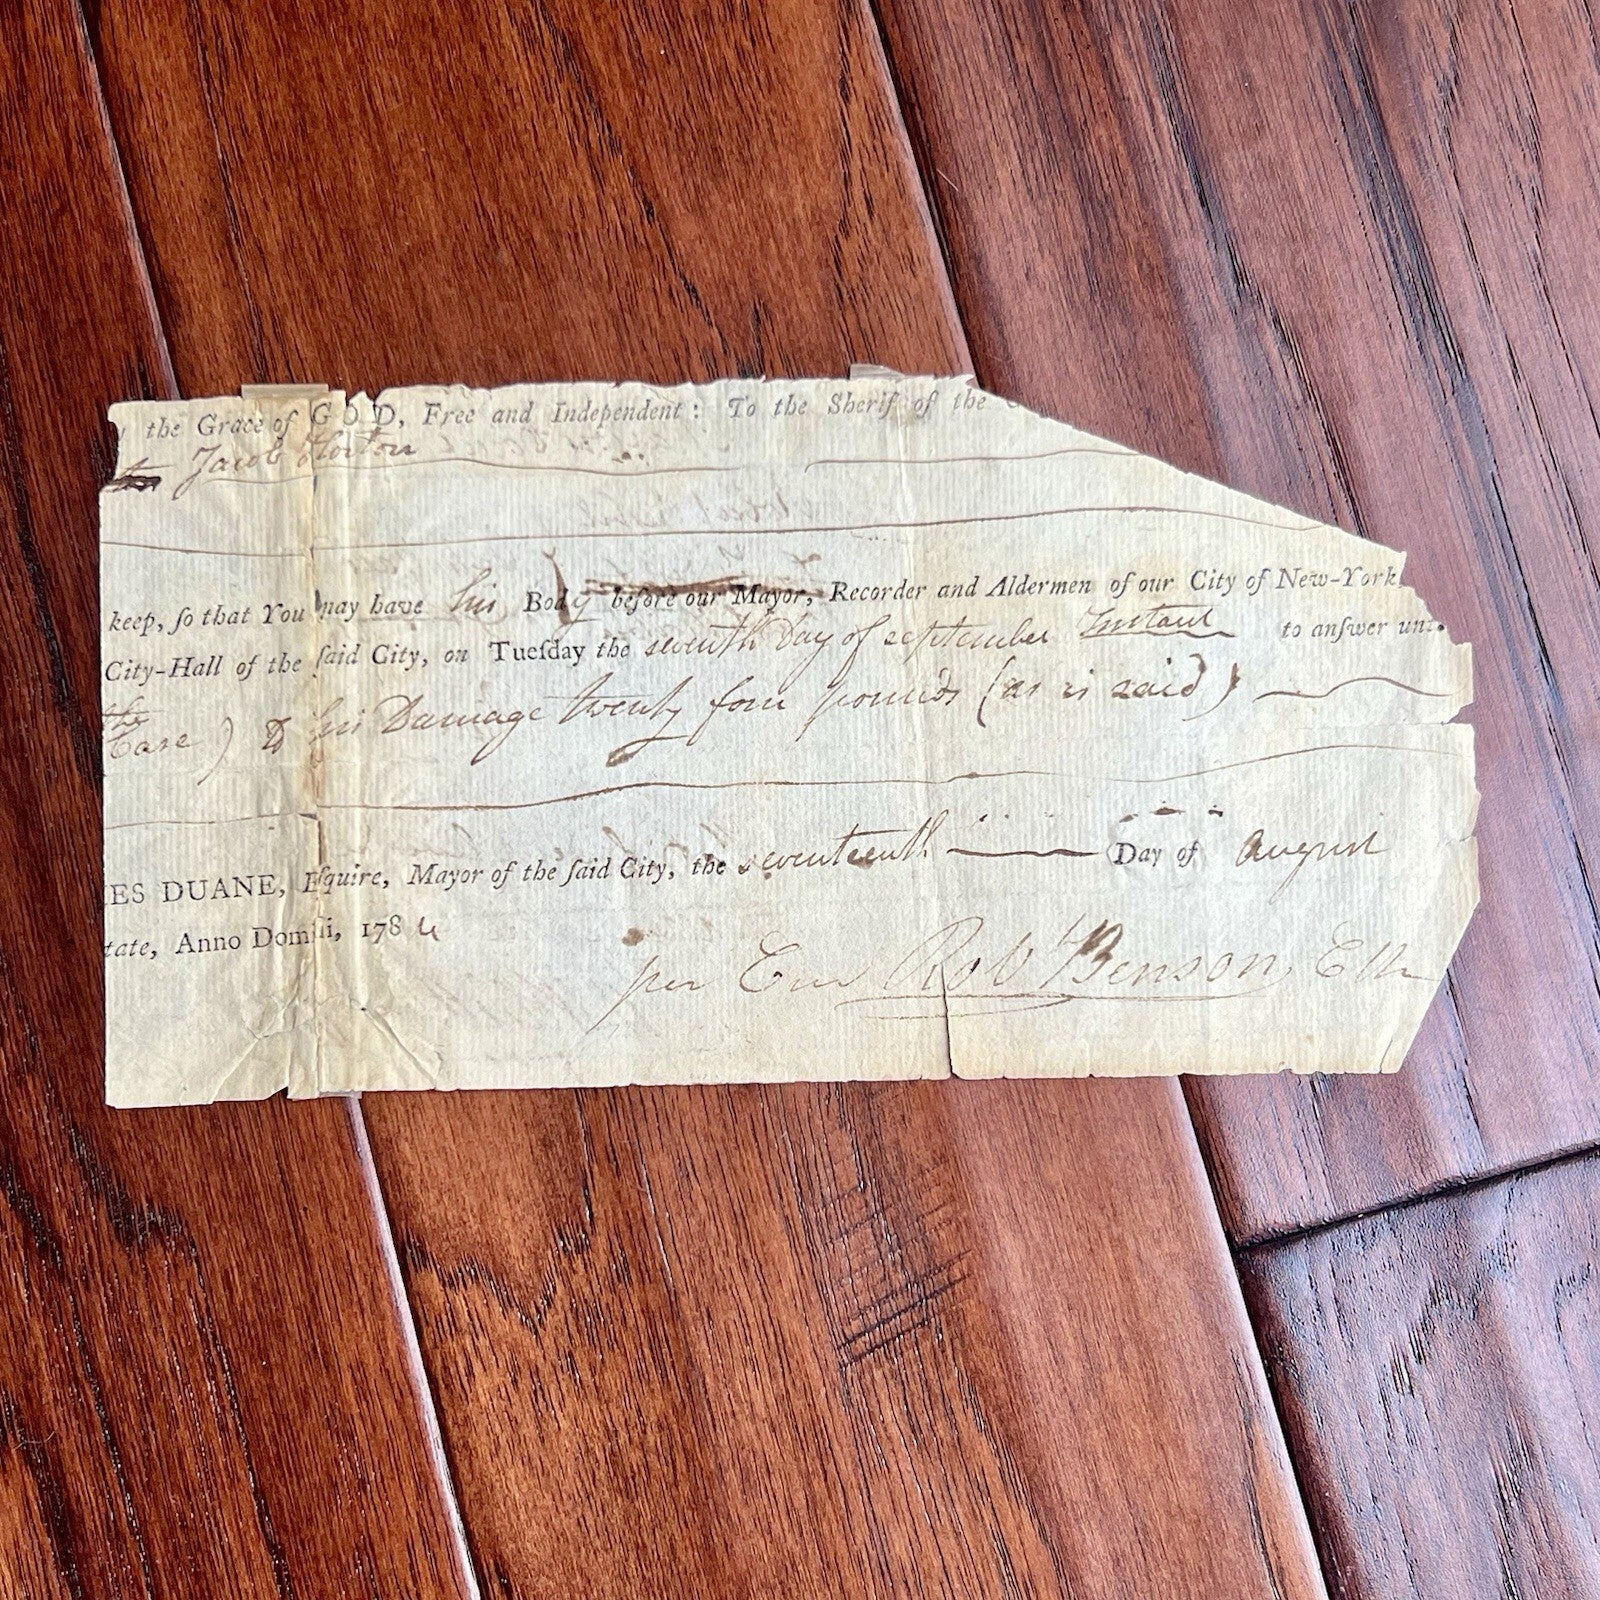 the Grace of GOD, Free and Independent: To the Sherif of the
Jacob Horton
keep, ſo that You may have his Body before our Mayor, Recorder and Aldermen of our City of New-York
City-Hall of the ſaid City, on Tueſday the seventh Day of september Instant to anſwer unto
the
Case) & his Damage twenty four pounds (as is said)
ES DUANE, Eſquire, Mayor of the ſaid City, the seventeenth Day of august
tate, Anno Domini, 1784
per Cur Rob Benson Clk